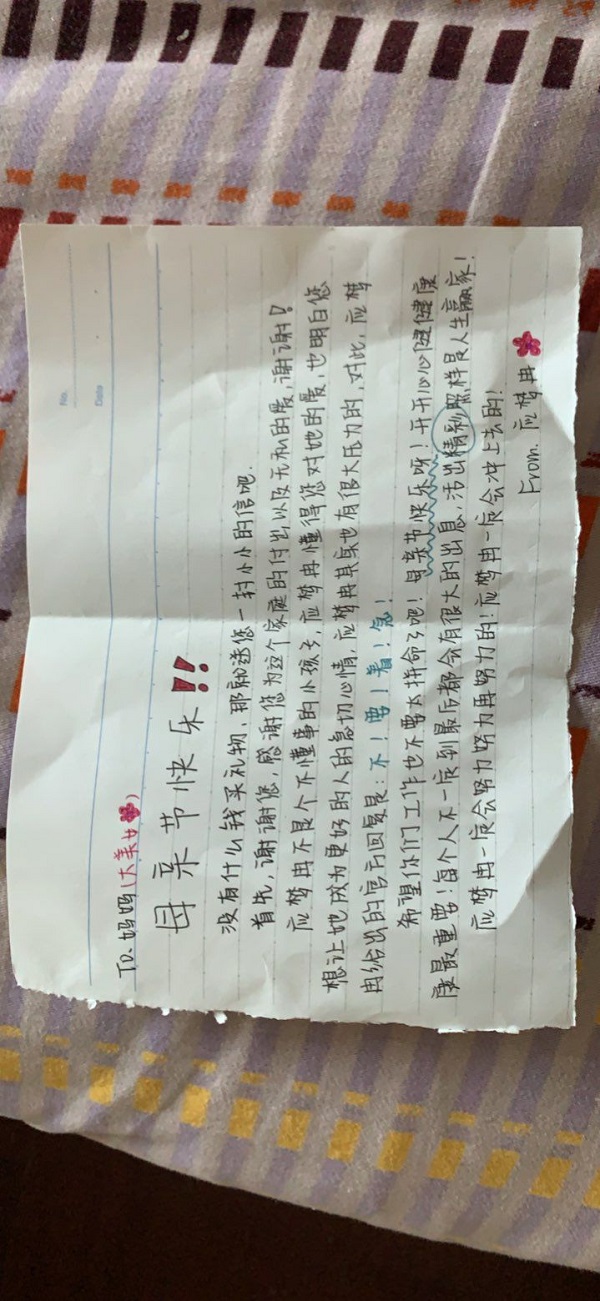 No.
Date
To. 妈妈(大美女)
母亲节快乐!!
没有什么钱买礼物,那就送您一封小小的信吧.
首先,谢谢您,感谢您为这个家庭的付出,以及无私的爱,谢谢!
应梦冉不是个不懂事的小孩子,应梦冉懂得您对她的爱,也明白您
想让她成为更好的人的急切心情,应梦冉其实也有很大压力的,对此,应梦
冉给出的官方回复是:不!要!着!急!
希望你们工作也不要太拼命了吧!母亲节快乐呀!开开心心健健康
康最重要!每个人不一定到最后都会有很大的出息,活出精彩照样是人生赢家!
应梦冉一定会努力努力再努力的!应梦冉一定会冲上去的!
From. 应梦冉